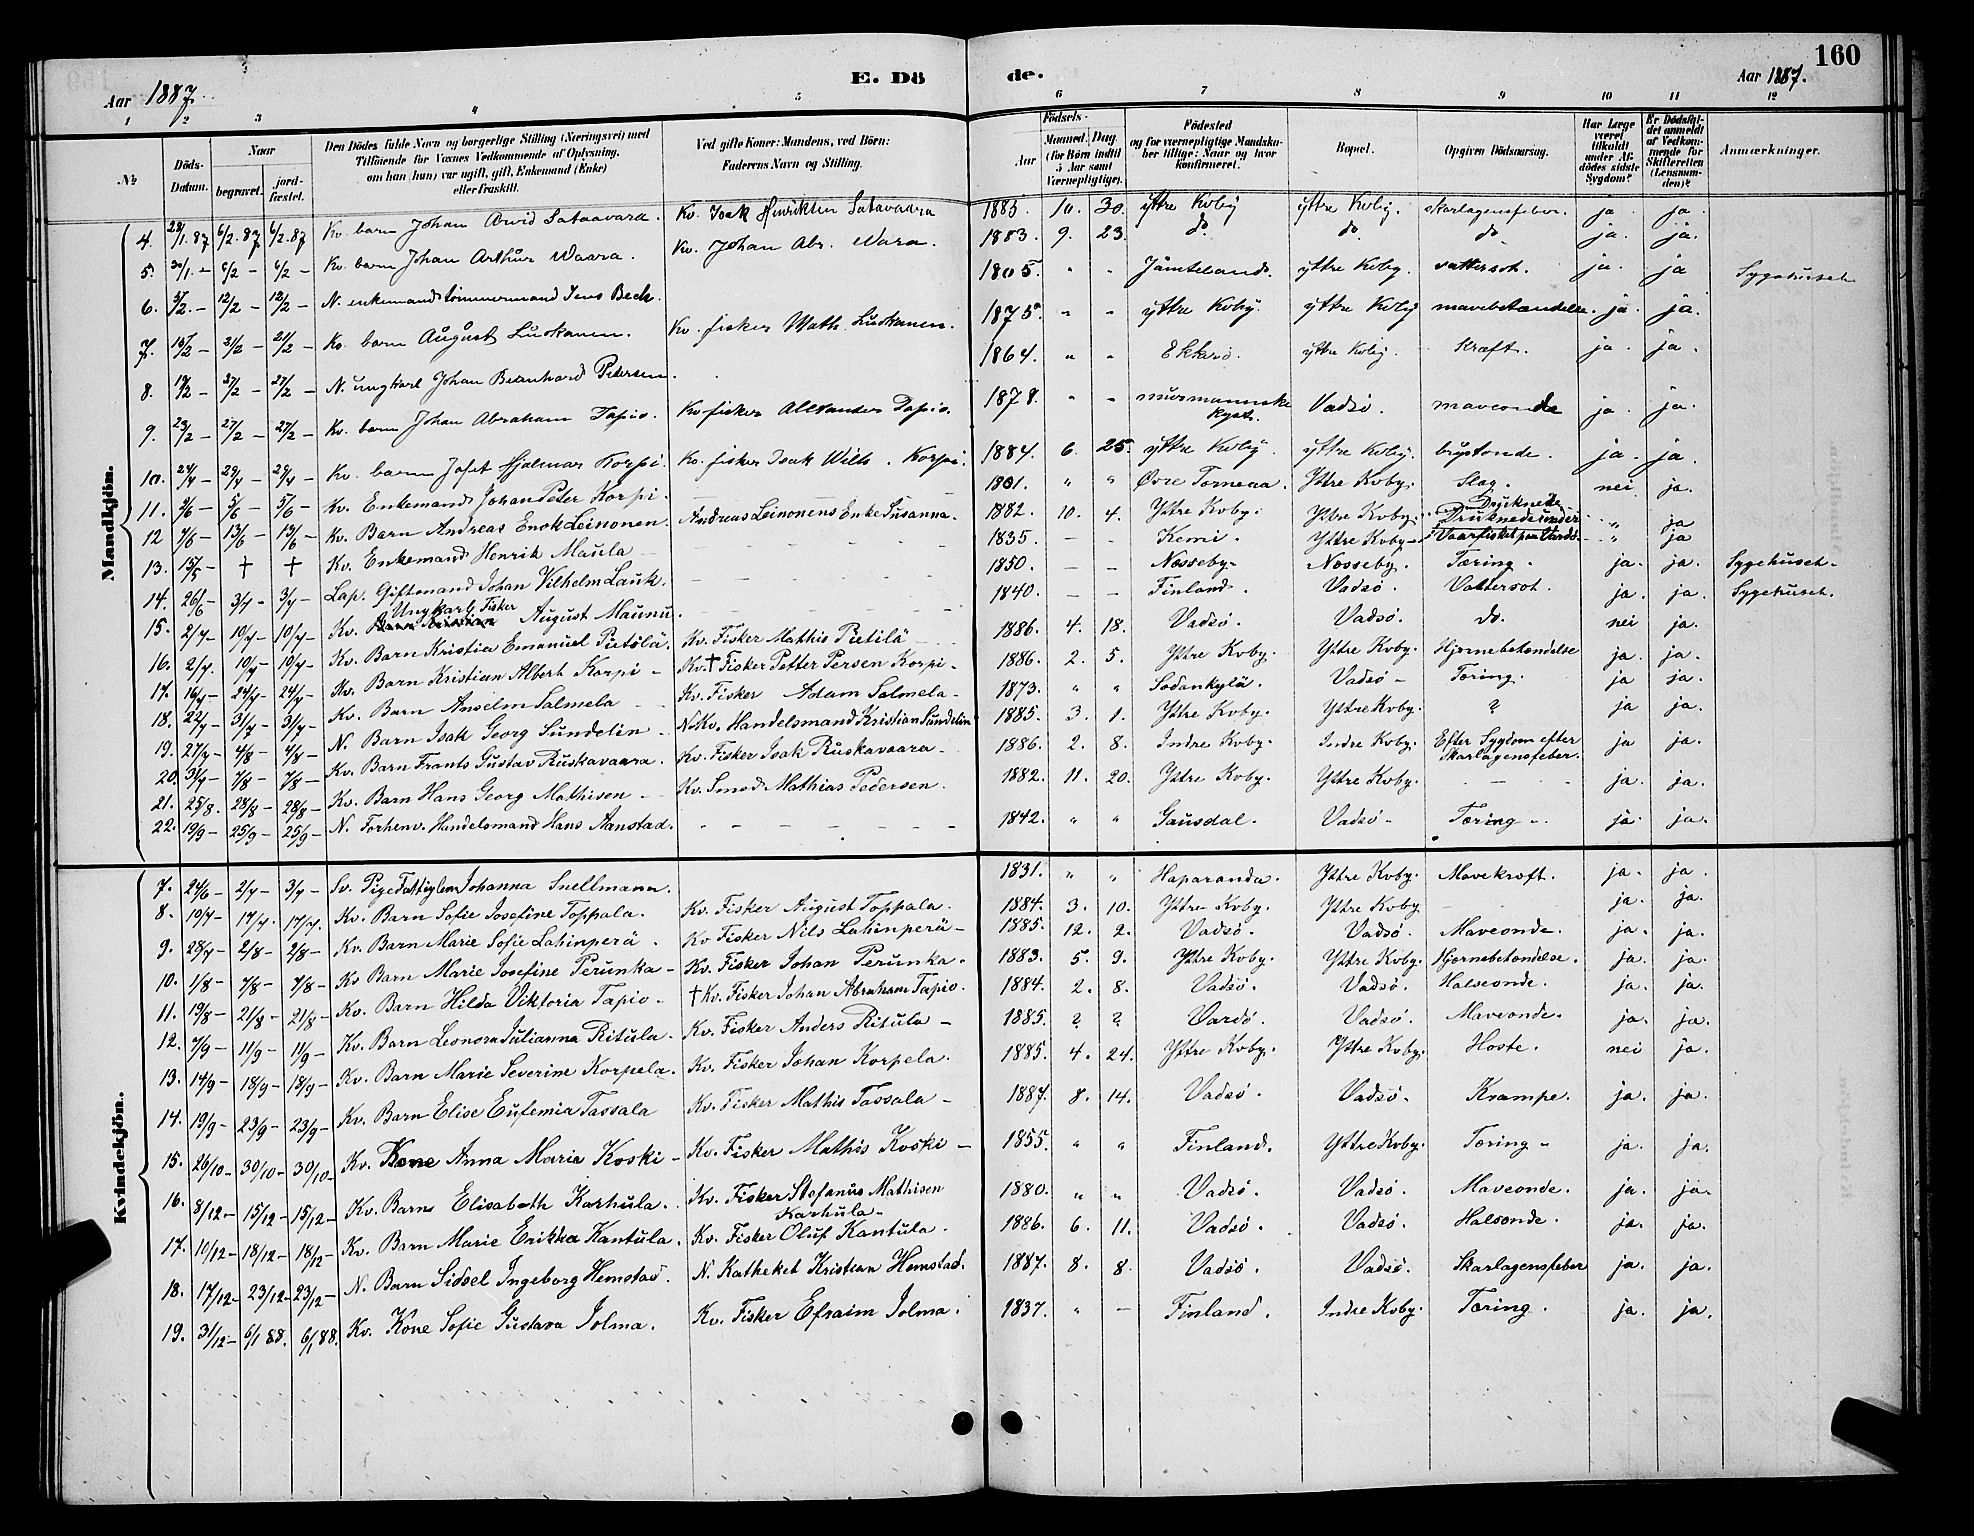 160
E. Dö de.
Aar 1887.
Aar 1887.
1 2 3 4 5 6 7 8 9 10 11 12
№
Döds-Datum.
Naar
begravet.
jord-fæstet.
Den Dödes fulde Navn og borgerlige Stilling (Næringsvei) med Tilföiende for Voxnes Vedkommende af Oplysning, om han (hun) var ugift, gift, Enkemand (Enke) eller fraskilt.
Ved gifte Koner: Mandens, ved Börn: Faderens Navn og Stilling.
Födsels-
Aar
Maaned. Dag.
(for Börn indtil 5 Aar samt Værnepligtige).
Födested og for værnepligtige Mandskaber tillige: Naar og hvor konfirmeret.
Bopæl.
Opgiven Dödsaarsag.
Har Læge været tilkaldt under Afdödes sidste Sygdom?
Er Dödsfaldet anmeldt af Vedkommende for Skifteretten (Lensmanden)?
Anmærkninger.
Mandkjön.
4. 28/1. 87 6/2. 87 6/2. 87 Kv. barn Johan Arvid Sataavara. Kv. Isak Henriksen Satavaara 1885 10. 30. yttre Kvby yttre Kvby. skarlagensfeber. ja. ja.
5. 30/1. - 6/2 - 6/2 - Kv. barn Johan Arthur Waara. Kv. Johan Abr. Wara. 1883. 9. 23. do. do. do. ja. ja.
6. 5/2. - 12/2 - 12/2 - N. enkemand tömmermand Jens Beck. 1805. " " Jämtelands. yttre Kvby. vattersot. ja. ja Sygehuset
7. 15/2 - 21/2 - 21/2 - Kv. barn August Luskanen. Kv. fisker Math. Luskanen. 1875. " " yttre Kvby. yttre Kvby mavebetændelse. ja. ja.
8. 19/2 - 27/2 - 27/2 - N. ungkarl Johan Bernhard Petersen. 1864. " " Ekkerö. yttre Kvby. Kræft. ja. ja.
9. 23/2 - 27/2 - 27/2 - Kv. barn Johan Abraham Tapio. Kv. fisker Alexander Tapio. 1878. " " murmanske kyst. Vadsö. maveonde ja. ja.
10. 24/4 - 29/4 - 29/4 - Kv. barn Josef Hjalmar Korpi. Kv. fisker Isak Wilh. Korpi. 1884. 6. 25. yttre Kvby. yttre Kvby. brystonde. ja. ja.
11. 5/6 - 5/6 - Kv. Enkemand Johan Peter Korpi. 1801. " " Övre Torneaa. Yttre Kvby. Slag. nei ja.
12 7/6 - 13/6 - 13/6 - Kv. Barn Andreas Enok Leinonen. Andreas Leinonens Enke Susanna. 1882. 10. 4. Yttre Kvby. Yttre Kvby. Druknede " ja
13. 15/5 - † † Kv. Enkemand Henrik Maula 1835. - - Kemi. Yttre Kvby - Druknede under Vaarfisket paa Vardö. " ja
14. 26/6 - 3/7 - 3/7 - Lap. Giftemand Johan Vilhelm Lauk. 1850. - - Nesseby. Nesseby. Tæring. ja. ja. Sygehuset.
15. 2/7 - 10/7 - 10/7 - Kv. Ungkarl, Fisker August Maunu. 1840. - - Finland. Vadsö. Vattersot. ja. ja. Sygehuset.
16. 2/7. 10/7 - 10/7 - Kv. Barn Kristian Emanuel Pietilä. Kv. Fisker Mathis Pietilä 1886. 4. 18. Vadsö. Vadsö. do. nei ja.
17. 16/7 - 24/7 - 24/7 - Kv. Barn Kristian Albert Korpi - Kv. † Fisker Petter Persen Korpi - 1886. 2. 5. Yttre Kvby. Yttre Kvby. Hjernebetændelse ja. ja.
18. 22/7 - 31/7 - 31/7 - Kv. Barn Anselm Salmela Kv. Fisker Adam Salmela - 1873. " " Sodankylä. Vadsö - Tæring. ja ja.
19. 27/7 - 4/8 - 4/8 - N. Barn Isak Georg Sundelin - N. Kv. Handelsmand Kristian Sundelin 1885. 3. 1. Yttre Kvby. Yttre Kvby. ? ja ja.
20. 31/7 - 7/8 - 7/8 - Kv. Barn Frants Gustav Ruskavaara. Kv. Fisker Isak Ruskavaara - 1886. 2. 8. Indre Kvby. Indre Kvby. Efter Sygdom efter Skarlagensfeber. ja ja.
21. 25/8. 28/8 - 28/8 - Kv. Barn Hans Georg Mathisen - Kv. Smed Mathias Pedersen. 1882. 11. 20. Yttre Kvby. Yttre Kvby. - - ja. ja.
22. 19/9 - 25/9 - 25/9 - N. Forhenv. Handelsmand Hans Aanstad. 1842. " " Gausdal. Vadsö - Tæring - ja. ja.
Kvindekjön.
7. 24/6 - 2/7 - 3/7 - Sv. Pige Fattiglem Johanna Snellmann. 1831. " " Haparanda. Yttre Kvby. Mavekræft. ja. ja.
8. 10/7 - 17/7. 17/7. Kv. Barn Sofie Josefine Toppala. Kv. Fisker August Toppala. 1884. 3. 10. Yttre Kvby. Yttre Kvby ja. ja.
9. 28/7 - 2/8 - 2/8 - Kv. Barn Marie Sofie Lahinperä. Kv Fisker Nils Lahinperä - 1885. 12. 2. Vadsö. Vadsö. Maveonde. ja. ja.
10. 1/8 - 7/8 - 7/8 - Kv Barn Marie Josefine Perunka - Kv. Fisker Johan Perunka. 1883. 5. 9. Yttre Kvby. Yttre Kvby. Hjernebetændelse. ja. ja.
11. 19/8 - 21/8 - 21/8 - Kv. Barn Hilda Viktoria Tapio. † Kv. Fisker Johan Abraham Tapio. 1884. 2. 8. Vadsö. Vadsö. Halseonde. ja. ja.
12. 7/9 - 11/9 - 11/9 - Kv. Barn Leonora Julianna Ritula. Kv. Fisker Anders Ritula - 1885. ? ? Vardö. Vadsö. Maveonde. ja. ja.
13. 14/9 - 18/9 - 18/9 - Kv. Barn Marie Severine Korpela. Kv. Fisker Johan Korpela. 1885. 4. 24. Yttre Kvby. Yttre Kvby. Hoste. nei ja.
14. 19/9 - 23/9 - 23/9 - Kv. Barn Elise Eufemia Tassala Kv. Fisker Mathis Tassala - 1887. 8. 14. Vadsö. Vadsö. Krampe. ja. ja.
15. 26/10 - 30/10 - 30/10 - Kv. Kone Anna Maria Koski - Kv. Fisker Mathis Koski - 1855. " " Finland. Yttre Kvby. Tæring - ja. ja.
16. 8/12 - 15/12 - 15/12 - Kv. Barn Elisabeth Karhula. Kv. Fisker Stefanus Mathisen Karhula - 1880. " " Vadsö. Vadsö. Maveonde. ja. ja.
17. 10/12 - 18/12 - 18/12 - Kv. Barn Marie Erikka Kantula. Kv. Fisker Oluf Kantula. 1886. 6. 11. Vadsö. Vadsö. Halsonde. ja. ja.
18. 17/12 - 23/12 - 23/12 - N. Barn Sidsel Ingeborg Hemstad. N. Katheket Kristian Hemstad. 1887. 8. 8. Vadsö. Vadsö. Skarlagensfeber ja. ja.
19. 31/12 - 6/1 88. 6/1 88. Kv. Kone Sofie Gustava Jolma. Kv. Fisker Efraim Jolma. 1837. " - Finland. Indre Kvby. Tæring. ja. ja.